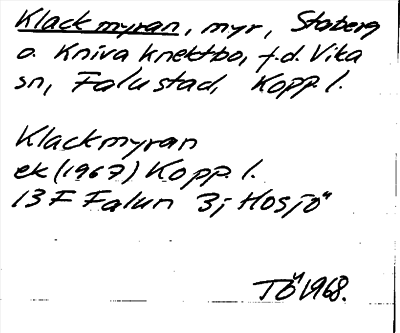 Klackmyran, myr, Staberg
o. Kniva knektbo, f.d. Vika
sn, Falu stad, Kopp. l.
Klackmyran
ek (1967) Kopp. l.
13 F Falun 3j Hosjö
TÖ 1968.